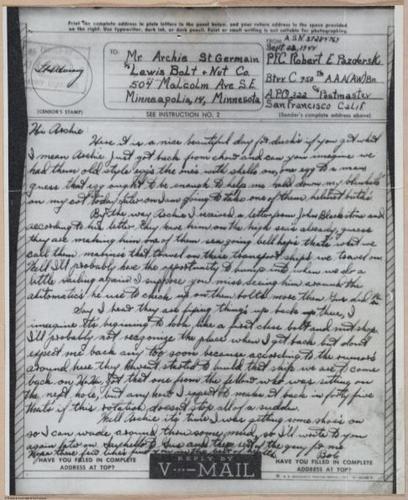 Print the complete address in plain letters in the panel below, and your return address in the space provided
on the right. Use typewriter, dark ink, or dark pencil. Faint or small writing is not suitable for photographing.
TO:
Mr Archie St Germain
℅ Lewis Bolt & Nut Co.
504 Malcolm Ave S.E.
Minneapolis, 14, Minnesota
FROM
Sept 1944
PFC Robert E
Btry C. 950th AAA(AW)Bn
A.P.O. 322 ℅ Postmaster
San Francisco Calif
(CENSOR'S STAMP)
SEE INSTRUCTION NO. 2
(Sender's complete address above)
Hi Archie
Here it is a nice beautiful day for ducks if you get what
I mean Archie. Just got back from chow and can you imagine we
had them old style eggs the ones with shells on, one egg to a man
guess that egg ought to be enough to help me hold down my blankets
on my cot today, later on I am going to take one of them helmet baths
By the way Archie I received a letter from John and
according to his letter they have him on the high seas already, guess
they are making him one of them sea going bell hops thats what we
call them marines that travel on these transport ships we travel on
Well I'll probably have the opportunity to bump into when we do a
little sailing again. I suppose you miss seeing him around the
automatics he use to check up on them bolts more then Gus did
Say I hear they are fixing things up back up there, I
imagine its beginning to look like a first class bolt and nut shop
I'll probably not recognize the place when I get back but dont
expect me back any too soon because according to the rumors
around here they havent started to build that ship we are to come
back on
the next hole, but any how I expect to make it back in forty five
thats if this rotation doesnt stop all of a sudden.
Well Archie its time I was getting some shoes on
so I can wade around them some more, so I'll write to you
again
Bob
HAVE YOU FILLED IN COMPLETE
ADDRESS AT TOP?
REPLY BY
V···—MAIL
HAVE YOU FILLED IN COMPLETE
ADDRESS AT TOP?